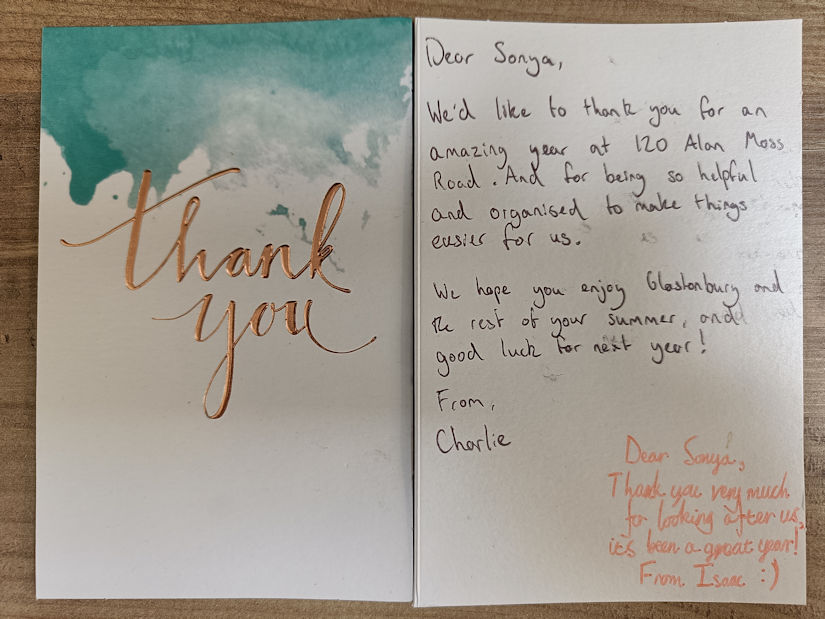 thank
you
Dear Sonya,
We'd like to thank you for an
amazing year at 120 Alan Moss
Road. And for being so helpful
and organised to make things
easier for us.
We hope you enjoy Glastonbury and
the rest of your summer, and
good luck for next year!
From,
Charlie
Dear Sonya,
Thank you very much
for looking after us,
it's been a great year!
From Isaac :)